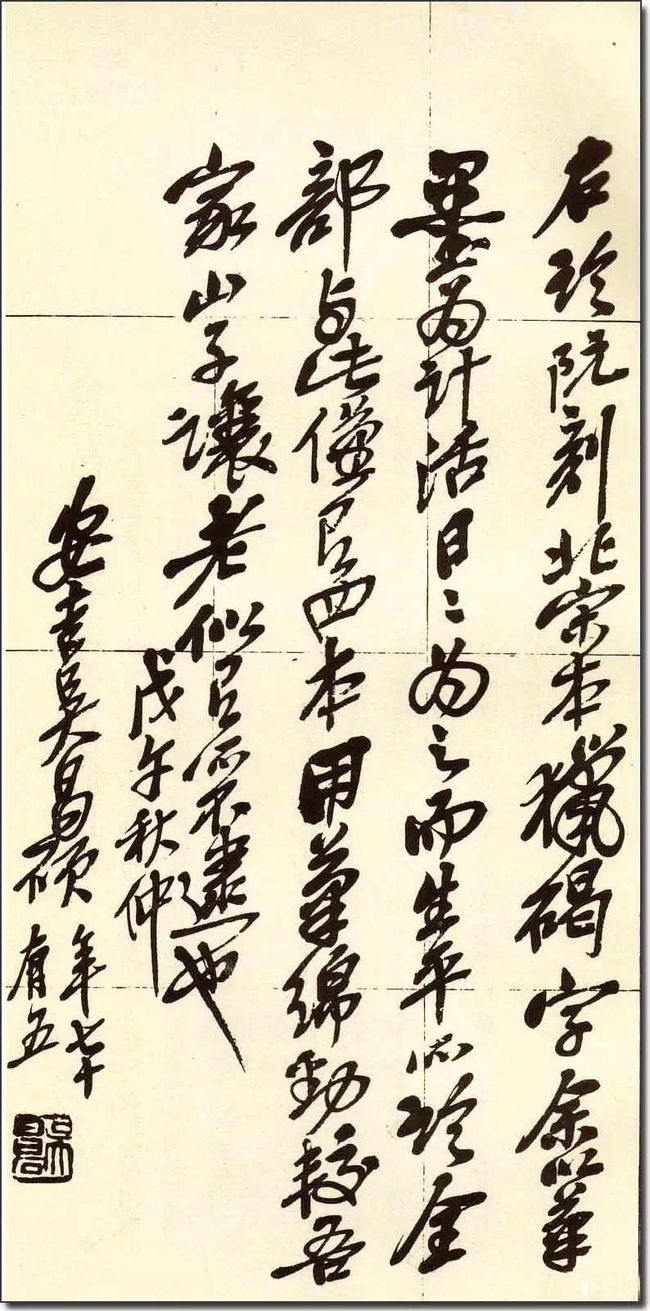 右臨阮刻北宋本獵碣字余以筆
墨為計活日〻為之而生平所臨全
部与此僅有四本用筆綿勁較吾
家山子讓老似有所不逮也
戊午秋仲
安吉吳昌碩年七十
有五